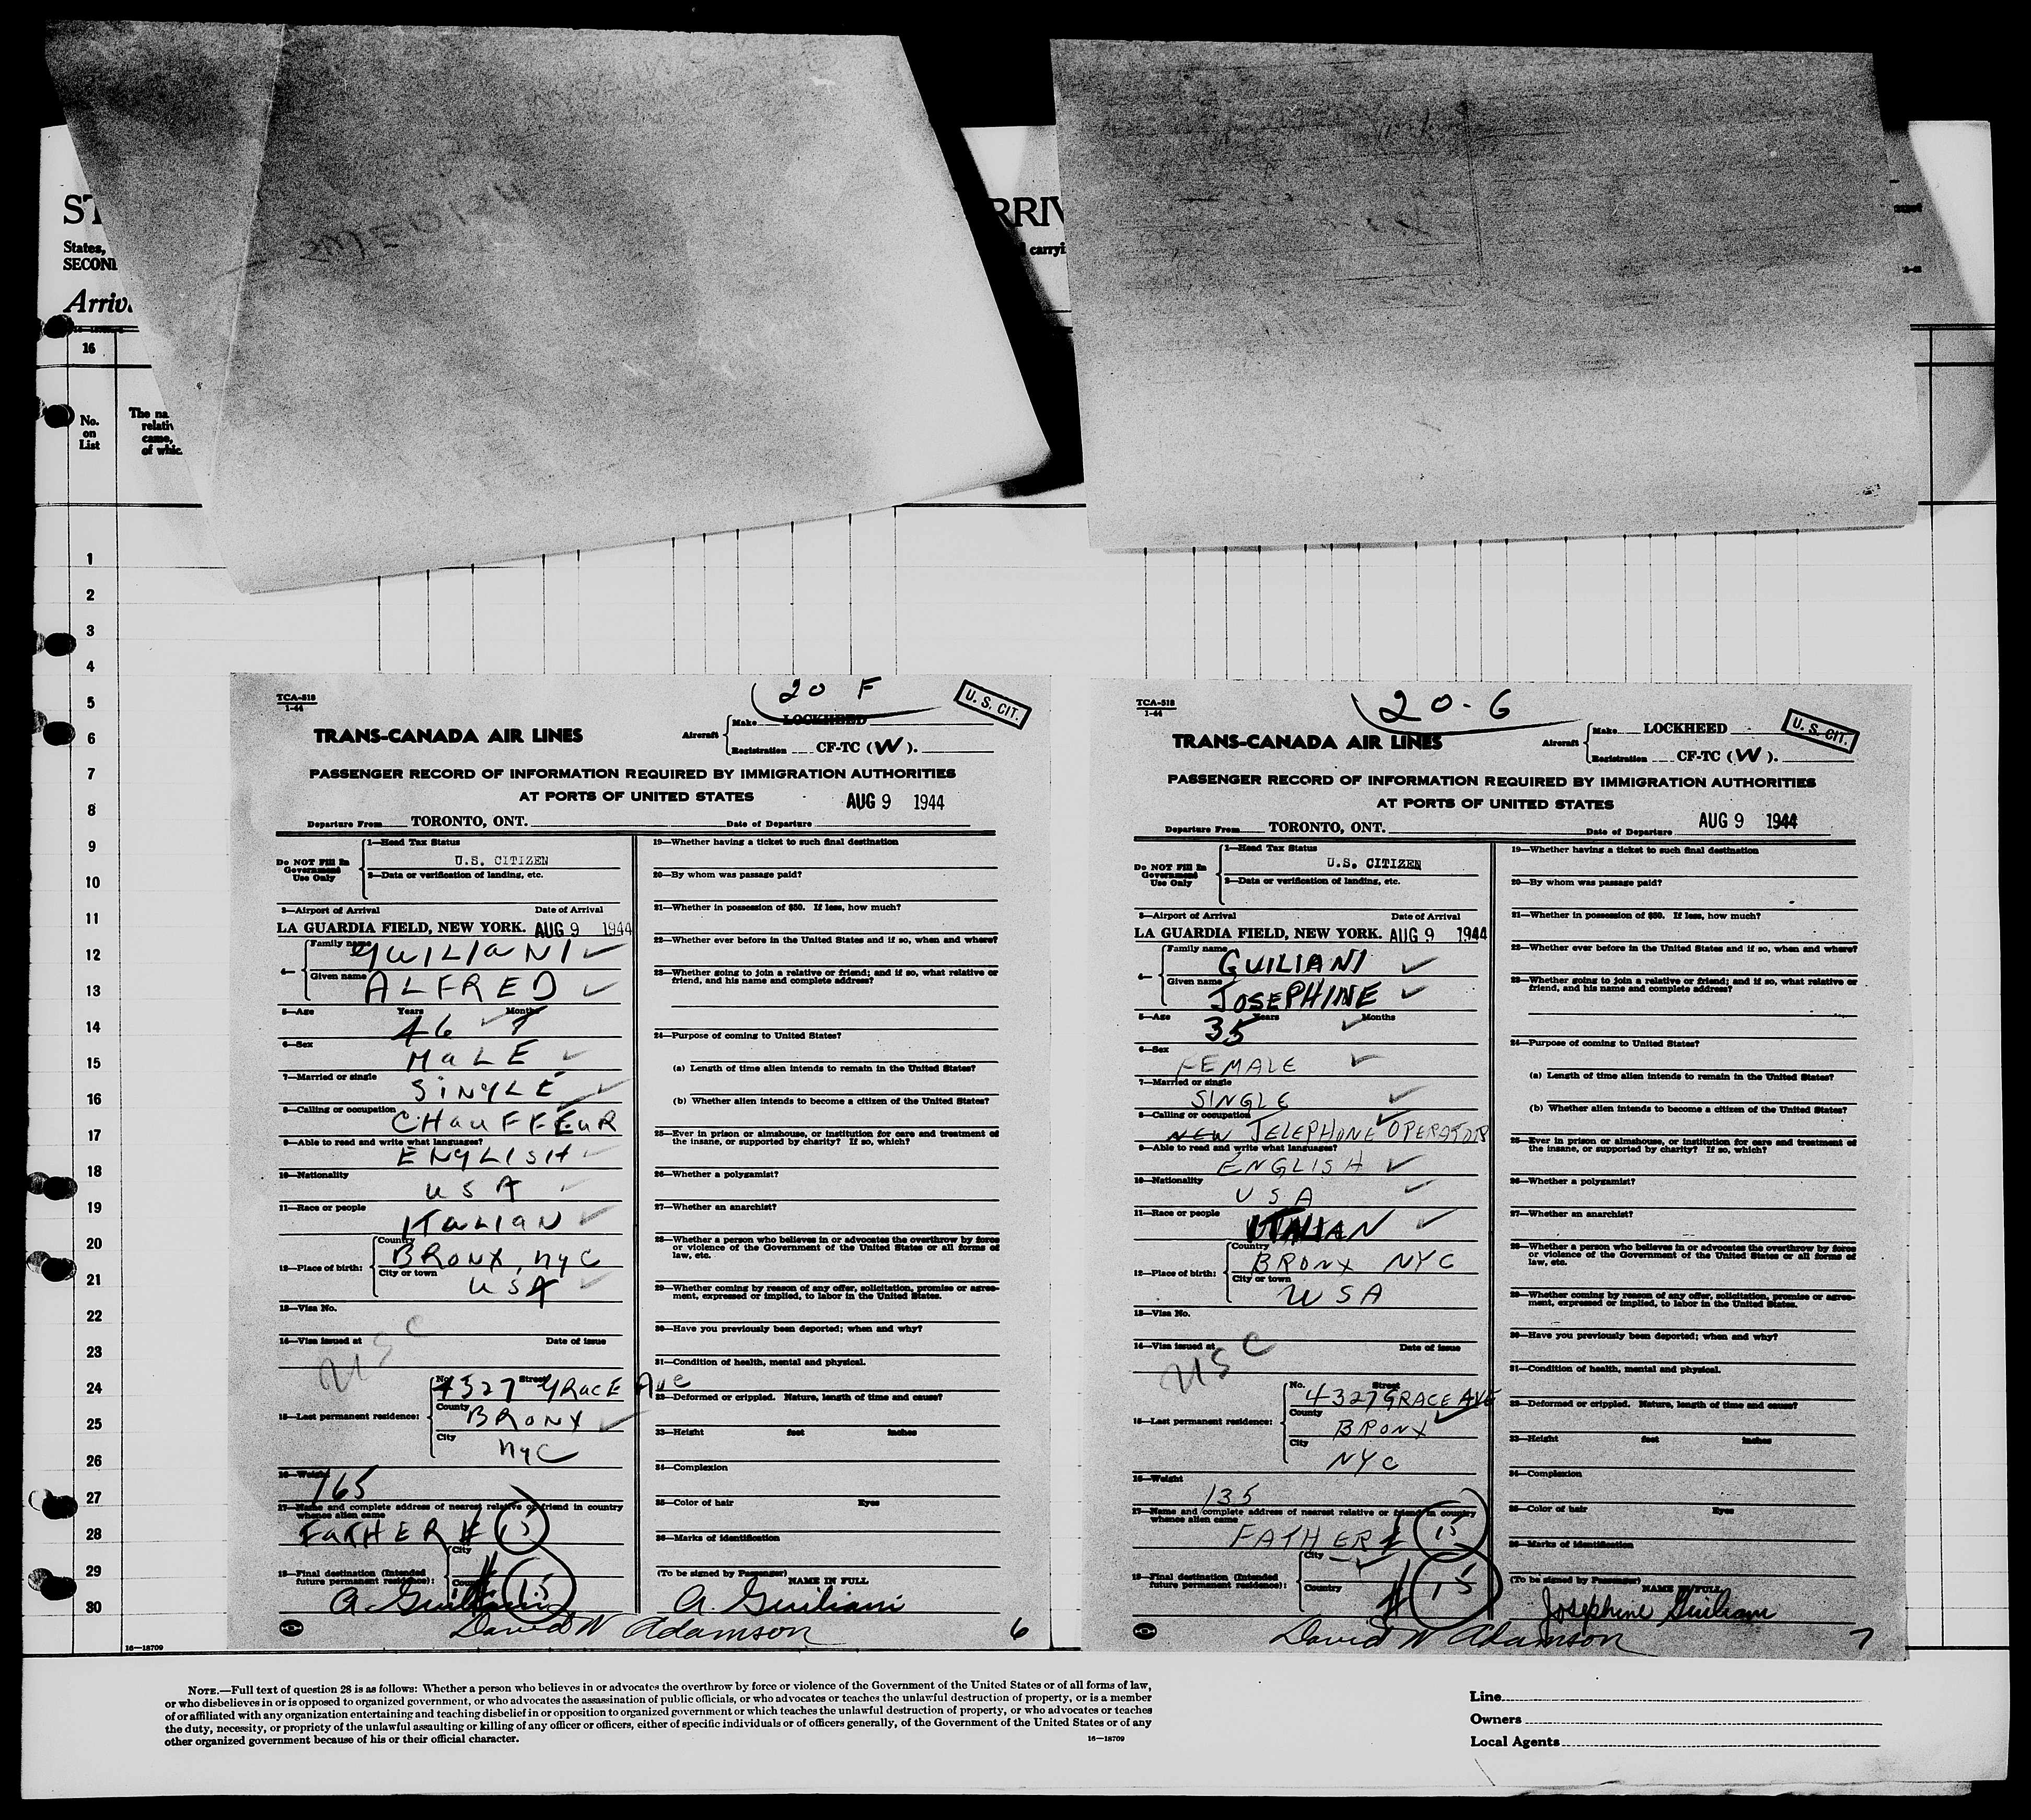 SWEDISH
ST
States,
SECOND
Arriv
RRIV
carryi
16
No.
on
List
The na
relativ
came,
of whic
1
2
3
4
5
6
7
8
9
10
11
12
13
14
15
16
17
18
19
20
21
22
23
24
25
26
27
28
29
30
16—18709
TCA-518
1-44
20 F
U. S. CIT.
TRANS-CANADA AIR LINES
Aircraft
Make LOCKHEED
Registration CF-TC (W).
PASSENGER RECORD OF INFORMATION REQUIRED BY IMMIGRATION AUTHORITIES
AT PORTS OF UNITED STATES
AUG 9 1944
Departure From TORONTO, ONT. Date of Departure
Do NOT Fill In
Government
Use Only
1—Head Tax Status
U.S. CITIZEN
2—Data or verification of landing, etc.
3—Airport of Arrival Date of Arrival
LA GUARDIA FIELD, NEW YORK. AUG 9 1944
4— Family name GUILIANI
Given name ALFRED
5—Age Years Months
46 7
6—Sex
MALE
7—Married or single
SINGLE
8—Calling or occupation
CHAUFFEUR
9—Able to read and write what languages?
ENGLISH
10—Nationality
USA
11—Race or people
ITALIAN
12—Place of birth:
Country
BRONX, NYC
City or town
USA
13—Visa No.
14—Visa issued at Date of issue
USC
15—Last permanent residence:
No. Street
4327 GRACE Ave
County
BRONX
City
NYC
16—Weight
165
17—Name and complete address of nearest relative or friend in country
whence alien came
FATHER # 15
18—Final destination (Intended
future permanent residence):
City
Country
# 15
A. Guiliani
19—Whether having a ticket to such final destination
20—By whom was passage paid?
21—Whether in possession of $50. If less, how much?
22—Whether ever before in the United States and if so, when and where?
23—Whether going to join a relative or friend; and if so, what relative or
friend, and his name and complete address?
24—Purpose of coming to United States?
(a) Length of time alien intends to remain in the United States?
(b) Whether alien intends to become a citizen of the United States?
25—Ever in prison or almshouse, or institution for care and treatment of
the insane, or supported by charity? If so, which?
26—Whether a polygamist?
27—Whether an anarchist?
28—Whether a person who believes in or advocates the overthrow by force
or violence of the Government of the United States or all forms of
law, etc.
29—Whether coming by reason of any offer, solicitation, promise or agree-
ment, expressed or implied, to labor in the United States.
30—Have you previously been deported; when and why?
31—Condition of health, mental and physical.
32—Deformed or crippled. Nature, length of time and cause?
33—Height feet inches
34—Complexion
35—Color of hair Eyes
36—Marks of identification
(To be signed by Passenger)
NAME IN FULL
A. Guiliani
David W Adamson
6
TCA-518
1-44
20-G
U. S. CIT.
TRANS-CANADA AIR LINES
Aircraft
Make LOCKHEED
Registration CF-TC (W).
PASSENGER RECORD OF INFORMATION REQUIRED BY IMMIGRATION AUTHORITIES
AT PORTS OF UNITED STATES
AUG 9 1944
Departure From TORONTO, ONT. Date of Departure
Do NOT Fill In
Government
Use Only
1—Head Tax Status
U.S. CITIZEN
2—Data or verification of landing, etc.
3—Airport of Arrival Date of Arrival
LA GUARDIA FIELD, NEW YORK. AUG 9 1944
4— Family name
GUILIANI
Given name
JOSEPHINE
5—Age Years Months
35
6—Sex
FEMALE
7—Married or single
SINGLE
8—Calling or occupation
NEW TELEPHONE OPERATOR
9—Able to read and write what languages?
ENGLISH
10—Nationality
USA
11—Race or people
ITALIAN
12—Place of birth:
Country
BRONX NYC
City or town
USA
13—Visa No.
14—Visa issued at Date of issue
USC
15—Last permanent residence:
No. Street
4327 GRACE AVE
County
BRONX
City
NYC
16—Weight
135
17—Name and complete address of nearest relative or friend in country
whence alien came
FATHER # 15
18—Final destination (Intended
future permanent residence):
City
Country
# 15
19—Whether having a ticket to such final destination
20—By whom was passage paid?
21—Whether in possession of $50. If less, how much?
22—Whether ever before in the United States and if so, when and where?
23—Whether going to join a relative or friend; and if so, what relative or
friend, and his name and complete address?
24—Purpose of coming to United States?
(a) Length of time alien intends to remain in the United States?
(b) Whether alien intends to become a citizen of the United States?
25—Ever in prison or almshouse, or institution for care and treatment of
the insane, or supported by charity? If so, which?
26—Whether a polygamist?
27—Whether an anarchist?
28—Whether a person who believes in or advocates the overthrow by force
or violence of the Government of the United States or all forms of
law, etc.
29—Whether coming by reason of any offer, solicitation, promise or agree-
ment, expressed or implied, to labor in the United States.
30—Have you previously been deported; when and why?
31—Condition of health, mental and physical.
32—Deformed or crippled. Nature, length of time and cause?
33—Height feet inches
34—Complexion
35—Color of hair Eyes
36—Marks of identification
(To be signed by Passenger)
NAME IN FULL
Josephine Guiliani
David W Adamson
7
NOTE.—Full text of question 28 is as follows: Whether a person who believes in or advocates the overthrow by force or violence of the Government of the United States or of all forms of law,
or who disbelieves in or is opposed to organized government, or who advocates the assassination of public officials, or who advocates or teaches the unlawful destruction of property, or is a member
of or affiliated with any organization entertaining and teaching disbelief in or opposition to organized government or which teaches the unlawful destruction of property, or who advocates or teaches
the duty, necessity, or propriety of the unlawful assaulting or killing of any officer or officers, either of specific individuals or of officers generally, of the Government of the United States or of any
other organized government because of his or their official character.
16—18709
Line
Owners
Local Agents